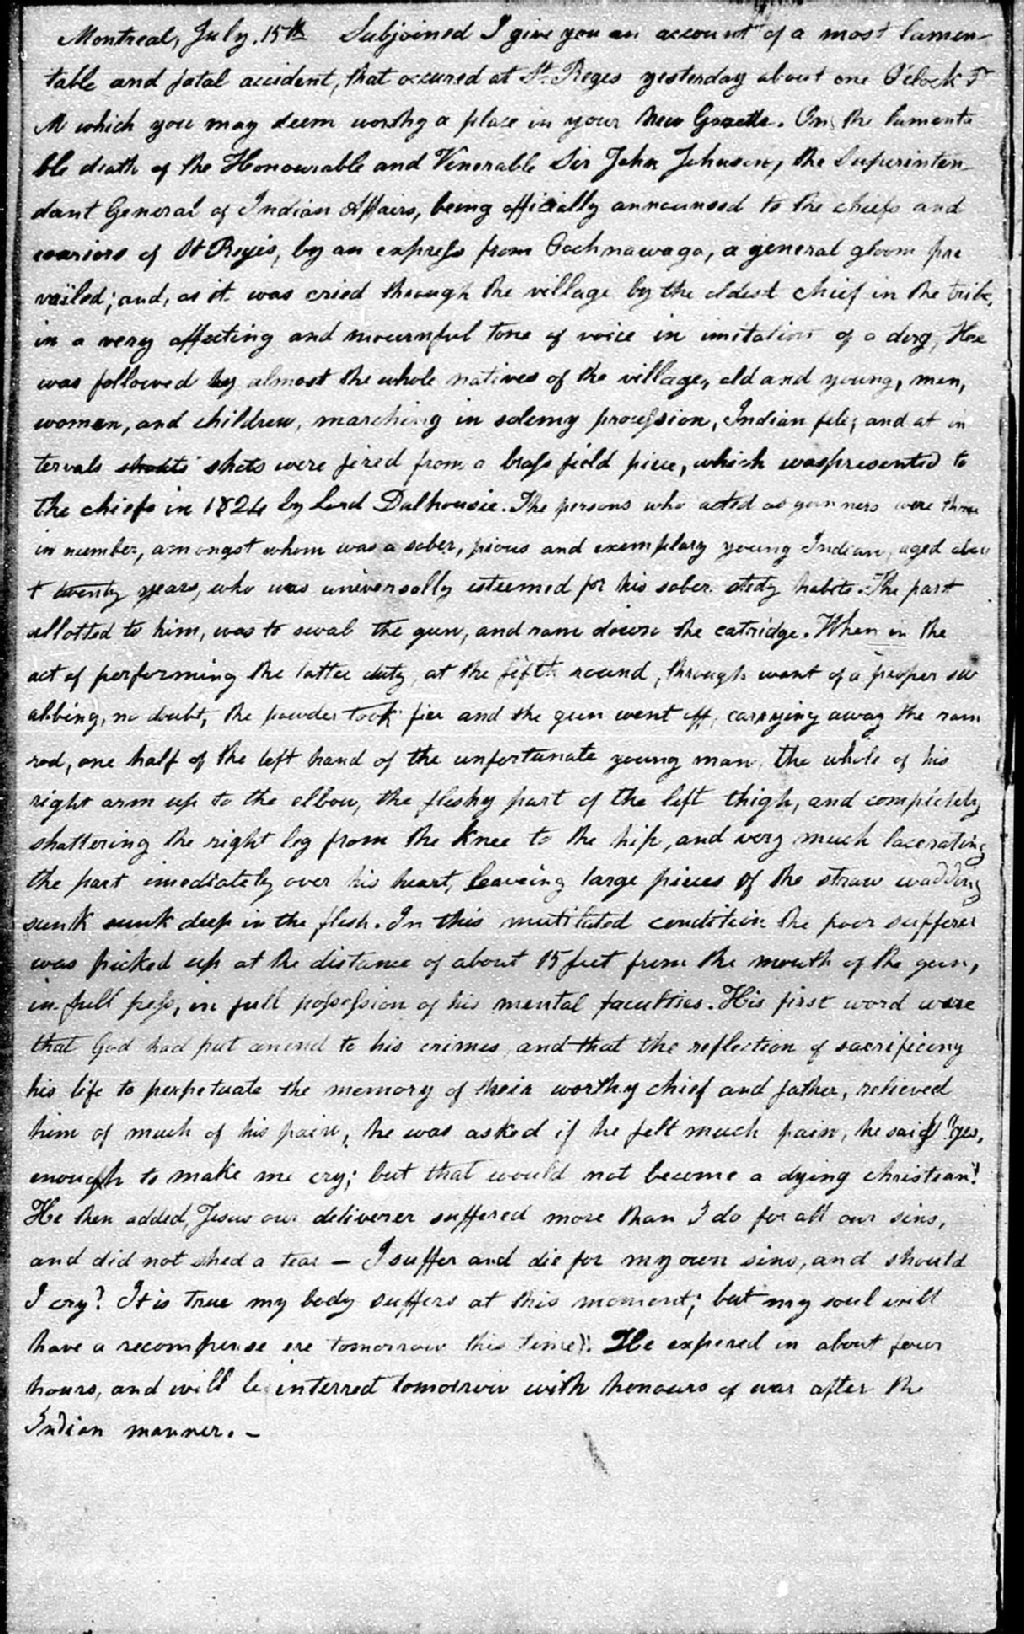 Montreal, July. 15th Subjoined I give you an account of a most lamen-
table and fatal accident, that occured at St. Reges yesterday about one O'clock P
M which you may deem worthy a place in your New Gazette. On the lamenta
ble death of the Honourable and Venerable Sir John Johnson, the Superinten-
dant General of Indian Affairs, being officially announsed to the chiefs and
warriors of St Regis, by an express from Cochnawaga, a general gloom pre
vailed; and, as it was cried through the village by the eldest chief in the tribe,
in a very affecting and mournful tone of voice in imitation of a dirg, Hee
was followed by almost the whole natives of the village, old and young, men,
women, and children, marching in solemy procession, Indian file; and at in
tervals shoots shots were fired from a brass field piece, which was presented to
the chiefs in 1824 by Lord Dalhousie. The persons who acted as gunners were three
in number, amongst whom was a sober, pious and exemplary young Indian, aged abou
t twenty years, who was universally esteemed for his sober stedy habits. The part
allotted to him, was to swab the gun, and ram down the catridge. When in the
act of performing the latter duty, at the fifth round, through want of a proper sw
abbing, no doubt, the powder took fier and the gun went off, carrying away the ram
rod, one half of the left hand of the unfortunate young man, the whole of his
right arm up to the elbow, the fleshy part of the left thigh, and completely
shattering the right leg from the knee to the hip, and very much lacerating
the part imediately over his heart, leaveing large pieces of the straw wadding
sunk sunk deep in the flesh. In this mutilated condition the poor sufferer
was picked up at the distance of about 15 feet from the mouth of the gun,
in full poss, in full possession of his mental faculties. His first word were
that God had put anend to his crimes, and that the reflection of sacrificeing
his life to perpetuate the memory of their worthy chief and father, relieved
him of much of his pain; he was asked if he felt much pain, he said "yes,
enough to make me cry; but that would not become a dying christian"
He then added, Jesus our deliverer suffered more than I do for all our sins,
and did not shed a tear — I suffer and die for my own sins, and should
I cry? It is true my body suffers at this moment; but my soul will
have a recompense ere tomorrow this time". He expered in about four
hours, and will be interred tomorrow with honours of war after the
Indian manner. —